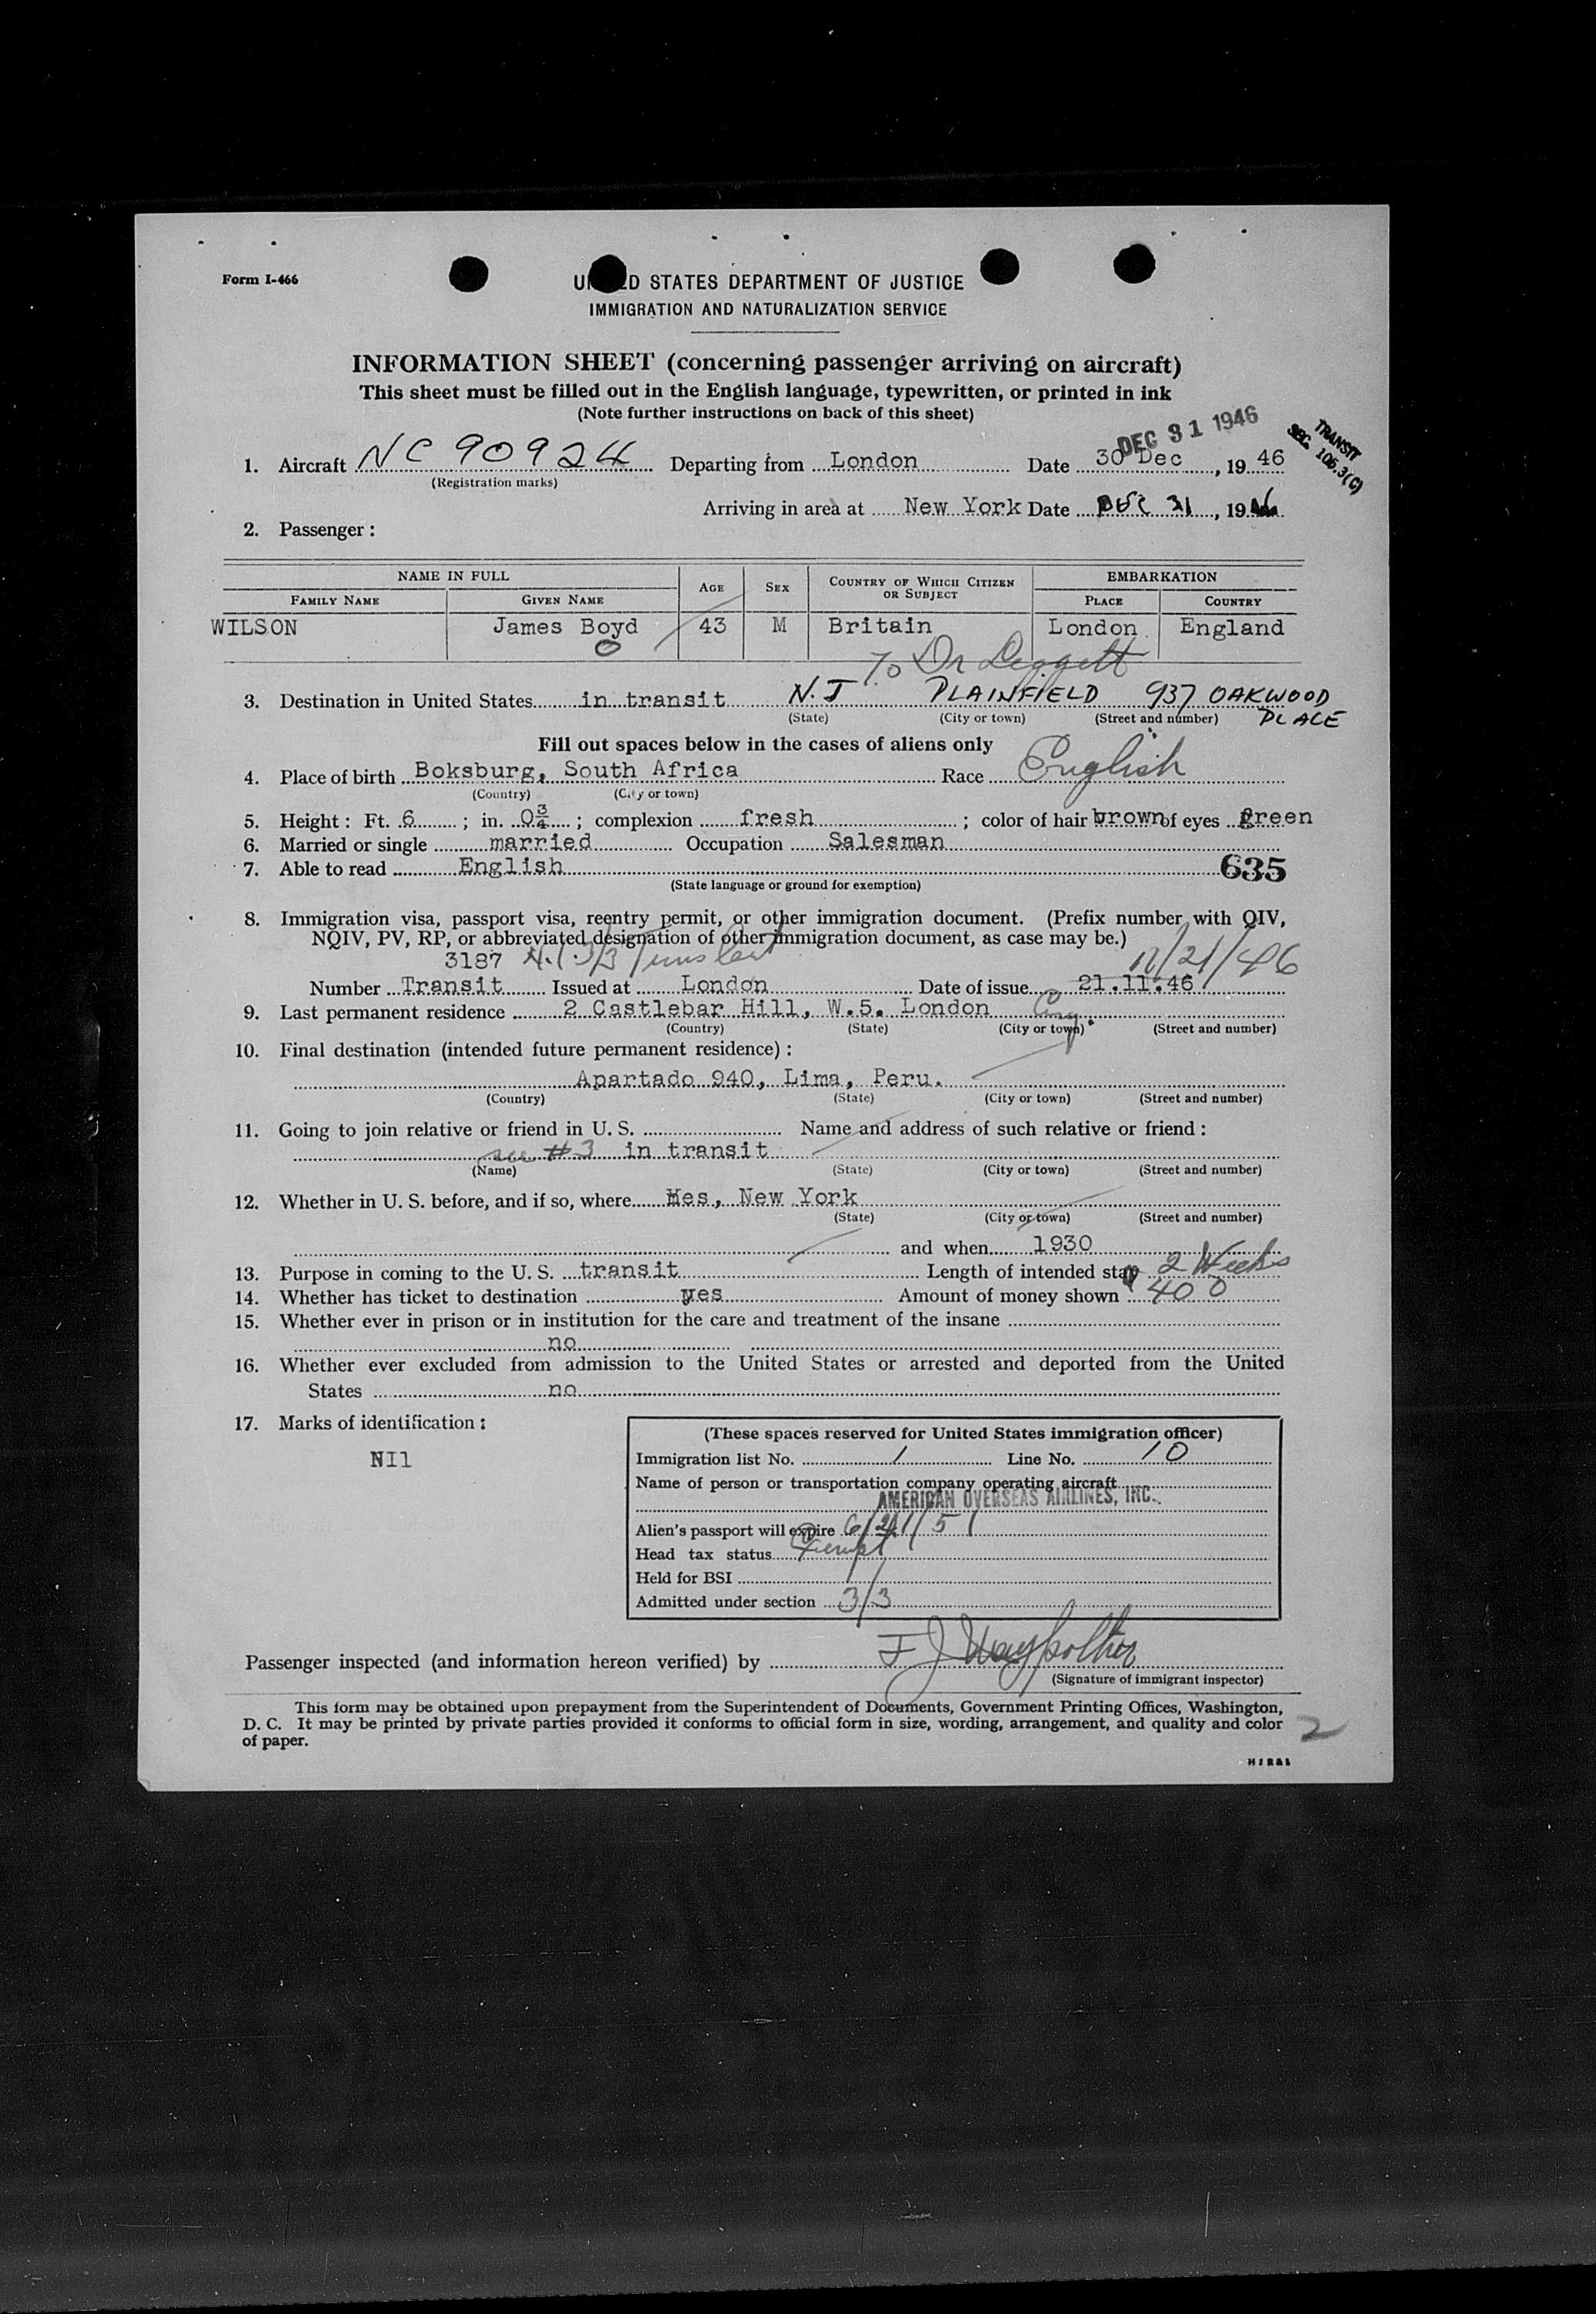 Form I-466
UNITED STATES DEPARTMENT OF JUSTICE
IMMIGRATION AND NATURALIZATION SERVICE
INFORMATION SHEET (concerning passenger arriving on aircraft)
This sheet must be filled out in the English language, typewritten, or printed in ink
(Note further instructions on back of this sheet)
DEC 31 1946
TRANSIT
SEC. 106.3(C)
1. Aircraft NC 90924 Departing from London Date 30 Dec, 19 46
(Registration marks)
Arriving in area at New York Date DEC 31, 1946
2. Passenger:
NAME IN FULL AGE SEX COUNTRY OF WHICH CITIZEN OR SUBJECT EMBARKATION
FAMILY NAME GIVEN NAME PLACE COUNTRY
WILSON James Boyd 43 M Britain London England
To Dr Leggett
3. Destination in United States in transit N.J PLAINFIELD 937 OAKWOOD PLACE
(State) (City or town) (Street and number)
Fill out spaces below in the cases of aliens only
4. Place of birth Boksburg, South Africa Race English
(Country) (City or town)
5. Height: Ft. 6; in. 0¾; complexion fresh; color of hair brown of eyes green
6. Married or single married Occupation Salesman
7. Able to read English 635
(State language or ground for exemption)
8. Immigration visa, passport visa, reentry permit, or other immigration document. (Prefix number with QIV,
NQIV, PV, RP, or abbreviated designation of other immigration document, as case may be.)
3187 11/21/46
Number Transit Issued at London Date of issue 21.11.46
9. Last permanent residence 2 Castlebar Hill, W.5. London Eng.
(Country) (State) (City or town) (Street and number)
10. Final destination (intended future permanent residence):
Apartado 940, Lima, Peru.
(Country) (State) (City or town) (Street and number)
11. Going to join relative or friend in U. S. Name and address of such relative or friend:
see #3 in transit
(Name) (State) (City or town) (Street and number)
12. Whether in U. S. before, and if so, where Yes, New York
(State) (City or town) (Street and number)
and when 1930
13. Purpose in coming to the U. S. transit Length of intended stay 2 Weeks
14. Whether has ticket to destination yes Amount of money shown 400
15. Whether ever in prison or in institution for the care and treatment of the insane
no
16. Whether ever excluded from admission to the United States or arrested and deported from the United
States no
17. Marks of identification:
NIl
(These spaces reserved for United States immigration officer)
Immigration list No. 1 Line No. 10
Name of person or transportation company operating aircraft
AMERICAN OVERSEAS AIRLINES, INC.
Alien's passport will expire 6/21/51
Head tax status Exempt
Held for BSI
Admitted under section 3/3
Passenger inspected (and information hereon verified) by
(Signature of immigrant inspector)
This form may be obtained upon prepayment from the Superintendent of Documents, Government Printing Offices, Washington,
D. C. It may be printed by private parties provided it conforms to official form in size, wording, arrangement, and quality and color
of paper.
2